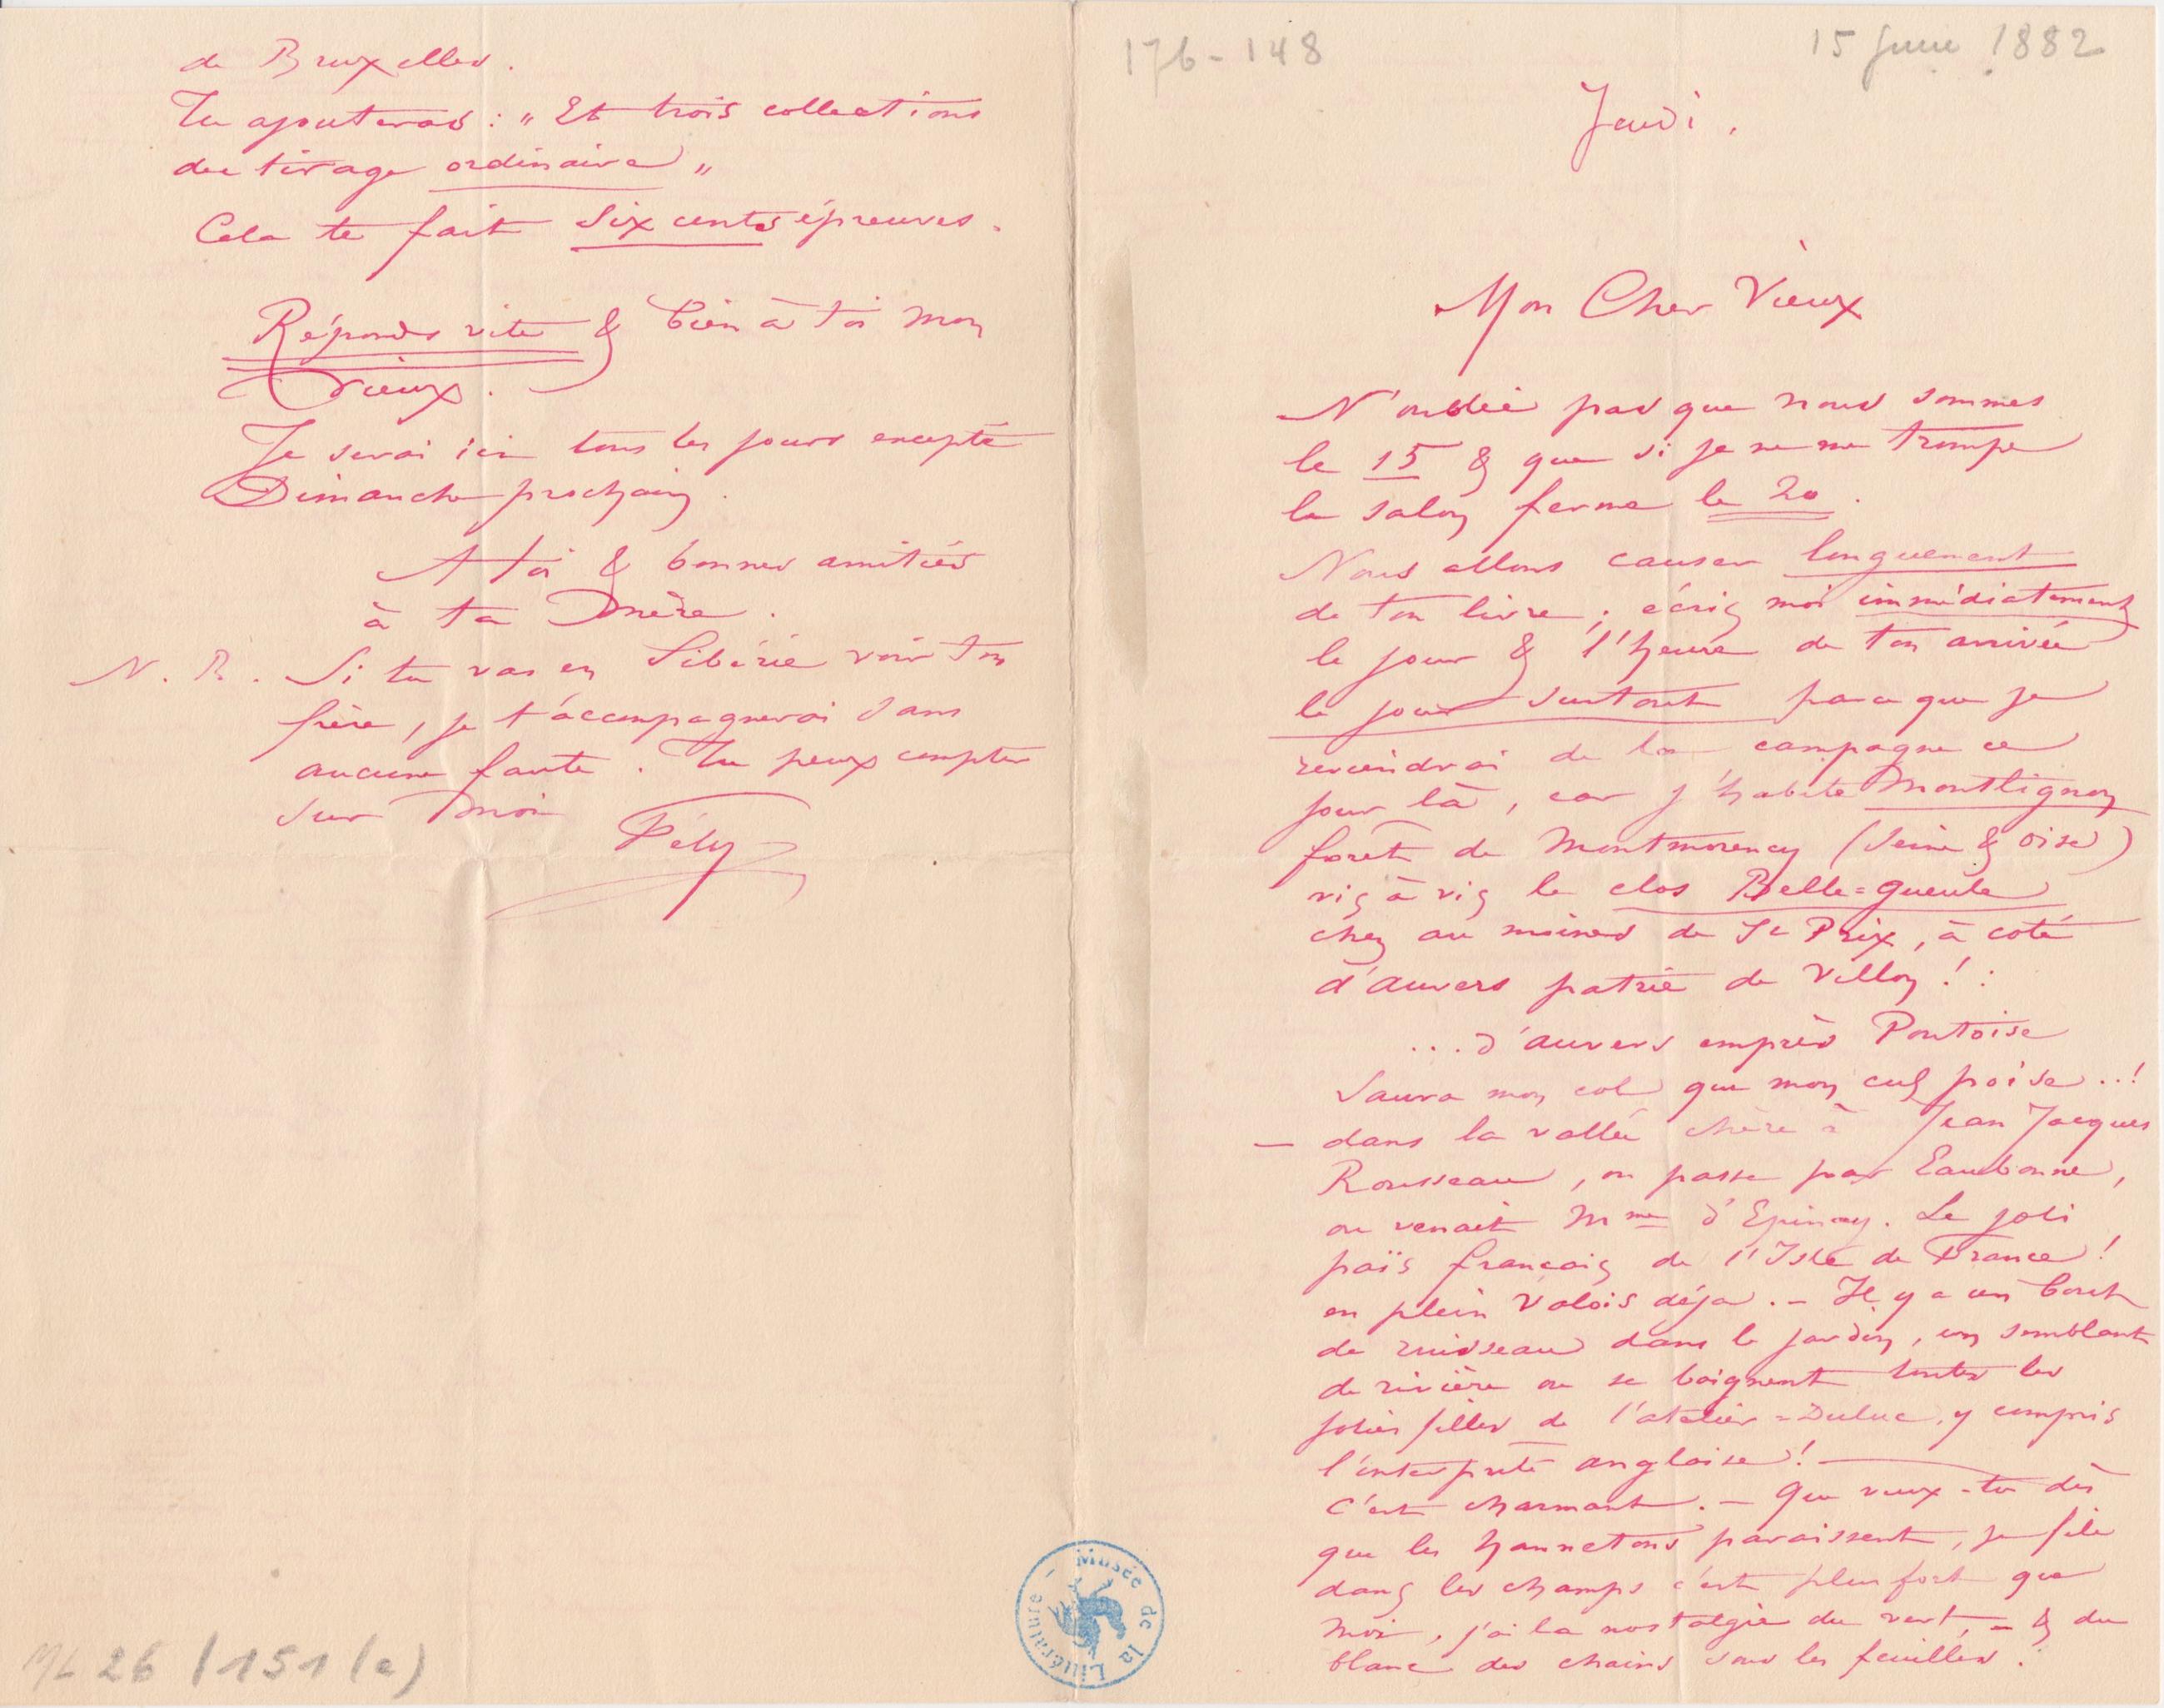 176-148
15 Juin 1882
Jeudi.
Mon Cher Vieux
N'oublie pas que nous sommes
le 15 & que si je ne me trompe
le salon ferme le 20.
Nous allons causer longuement
de ton livre ; écris moi immédiatement
le jour & l'heure de ton arrivée
le jour surtout parce que je
reviendrai de la campagne ce
jour là, car j'habite Montlignon
foret de Montmorency (Seine & Oise)
vis à vis le clos Belle=gueule
chez au moines de St Prix, à coté
d'Auvers patrie de Villon ! :
... d'Auvers emprès Pontoise
Saura mon col que mon cul poise ..!
— dans la vallée chère à Jean Jacques
Rousseau, on passe par Eaubonne,
ou venait Mme d'Epinay. Le joli
païs françois de l'Isle de France !
en plein Valois déja. — Il y a un bout
de ruisseau dans le jardin, un semblant
de rivière ou se baignent toutes les
jolies filles de l'atelier=Duluc, y compris
l'interprète anglaise ! —
C'est charmant. — Que veux-tu dès
que les hannetons paraissent, je file
dans les champs c'est plus fort que
moi, j'ai la nostalgie du vert, — & du
blanc des chairs sous les feuilles.
de Bruxelles.
Tu ajouteras : „ Et trois collections
du tirage ordinaire „
Cela te fait six cents épreuves.
Réponds vite & bien à toi mon
vieux.
Je serai ici tous les jours excepté
Dimanche prochain.
A toi & bonnes amitiés
à ta Mère.
N. B. Si tu vas en Sibérie voir ton
frère, je t'accompagnerai sans
aucune faute. Tu peux compter
sur moi
Fély
ML 26 / 151 (a)
Musée de la Littérature